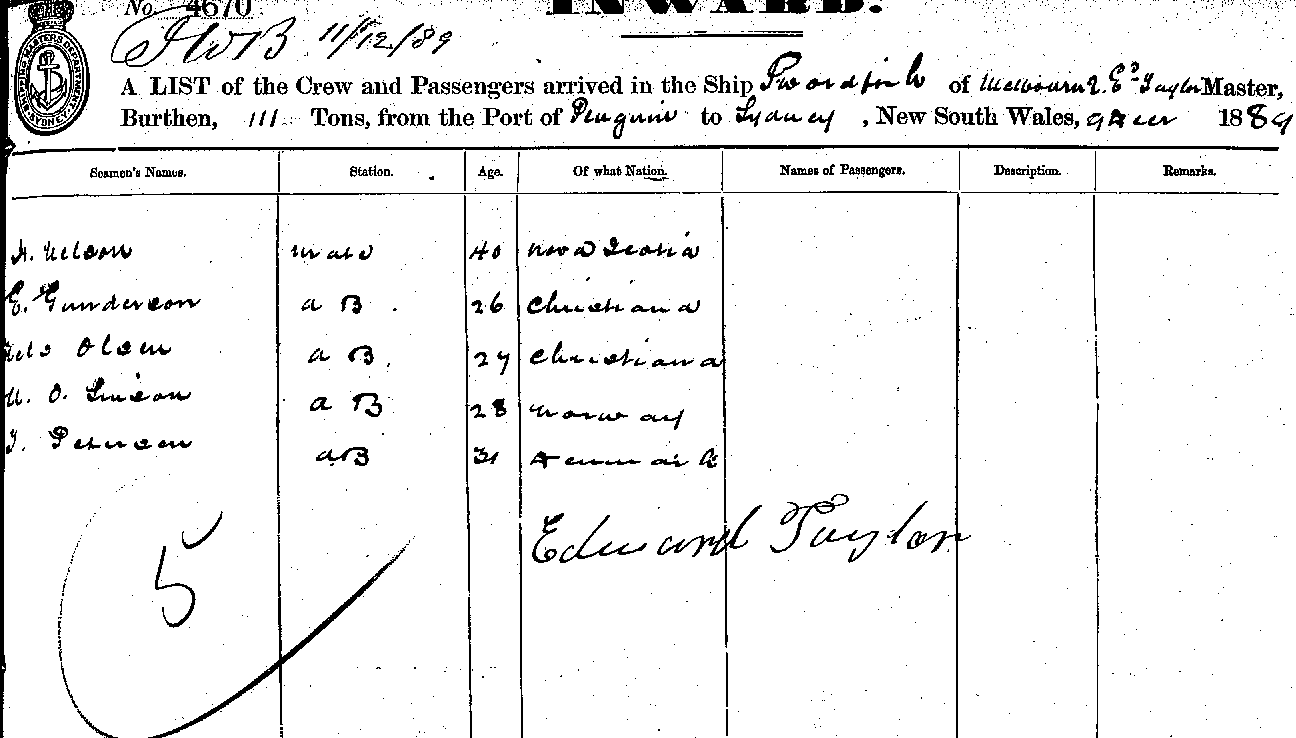 No. 4670 INWARD.
JWB 11/12/89
SHIPPING MASTERS DEPARTMENT SYDNEY
A LIST of the Crew and Passengers arrived in the Ship Swordfish of Melbourne, Ed. Taylor Master,
Burthen, 111 Tons, from the Port of Penguin to Sydney, New South Wales, 9 Decr 1889
Seamen's Names. Station. Age. Of what Nation. Names of Passengers. Description. Remarks.
A. Nelson Mate 40 Nova Scotia
E. Gunderson A B. 26 Christiana
Nels Olsen A B. 27 Christiana
O. A B 28 Norway
Petersen AB 31 Denmark
Edward Taylor
5